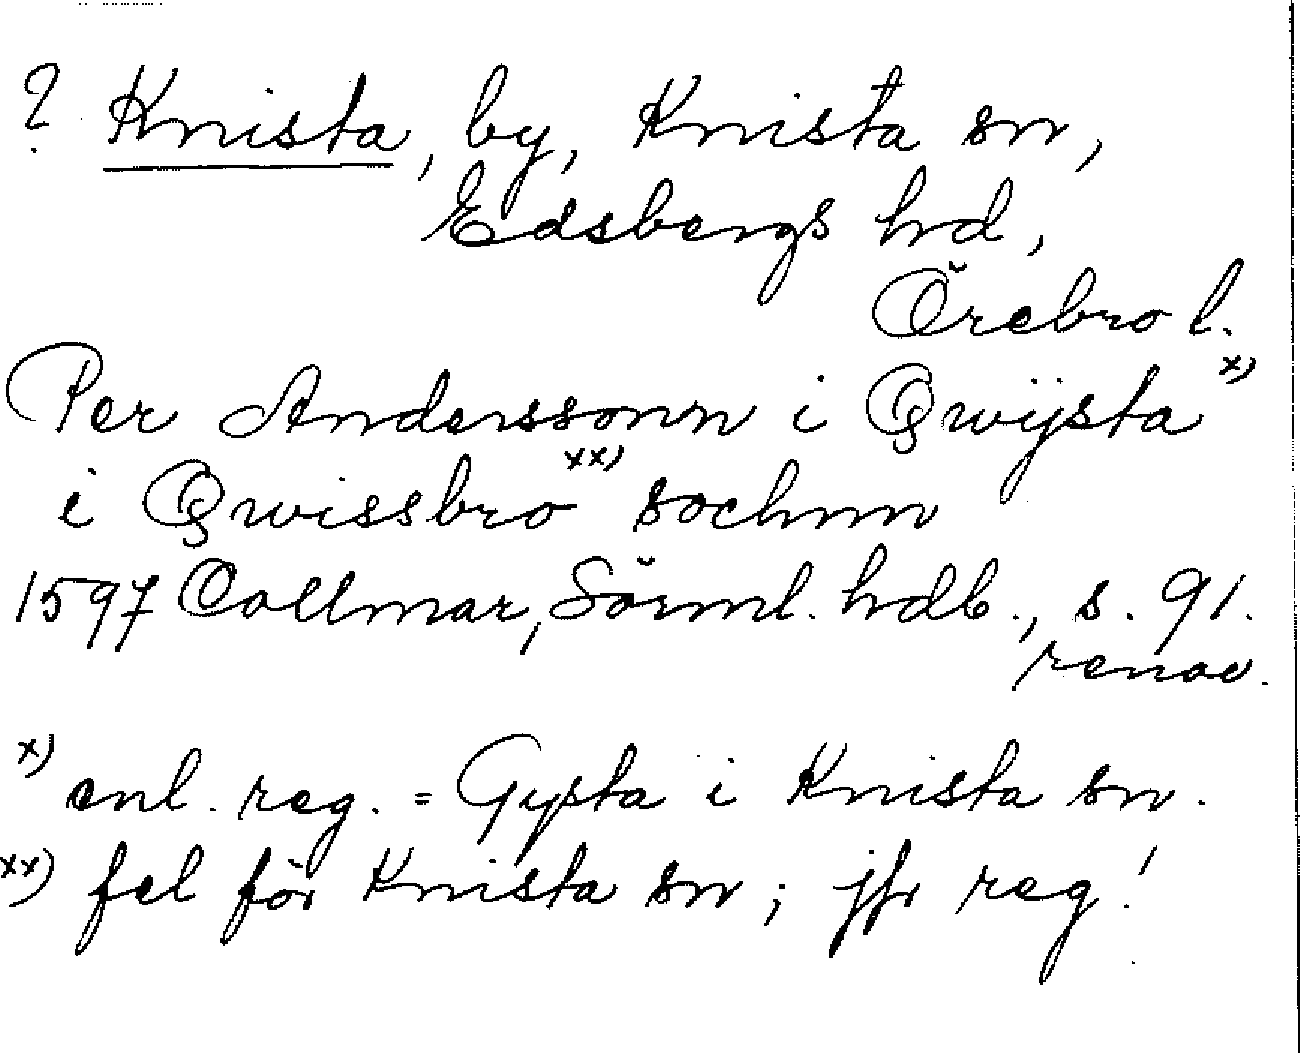 ? Knista, by, Knista sn,
Edsbergs hd,
Örebro l.
Per Anderssonn i Qwijsta x)
i Qwissbro xx) sochnn
1597 Collmar, Sörml. hdb., s. 91.
renov.
x) enl. reg. = Gysta i Knista sn.
xx) fel för Knista sn; jfr reg!